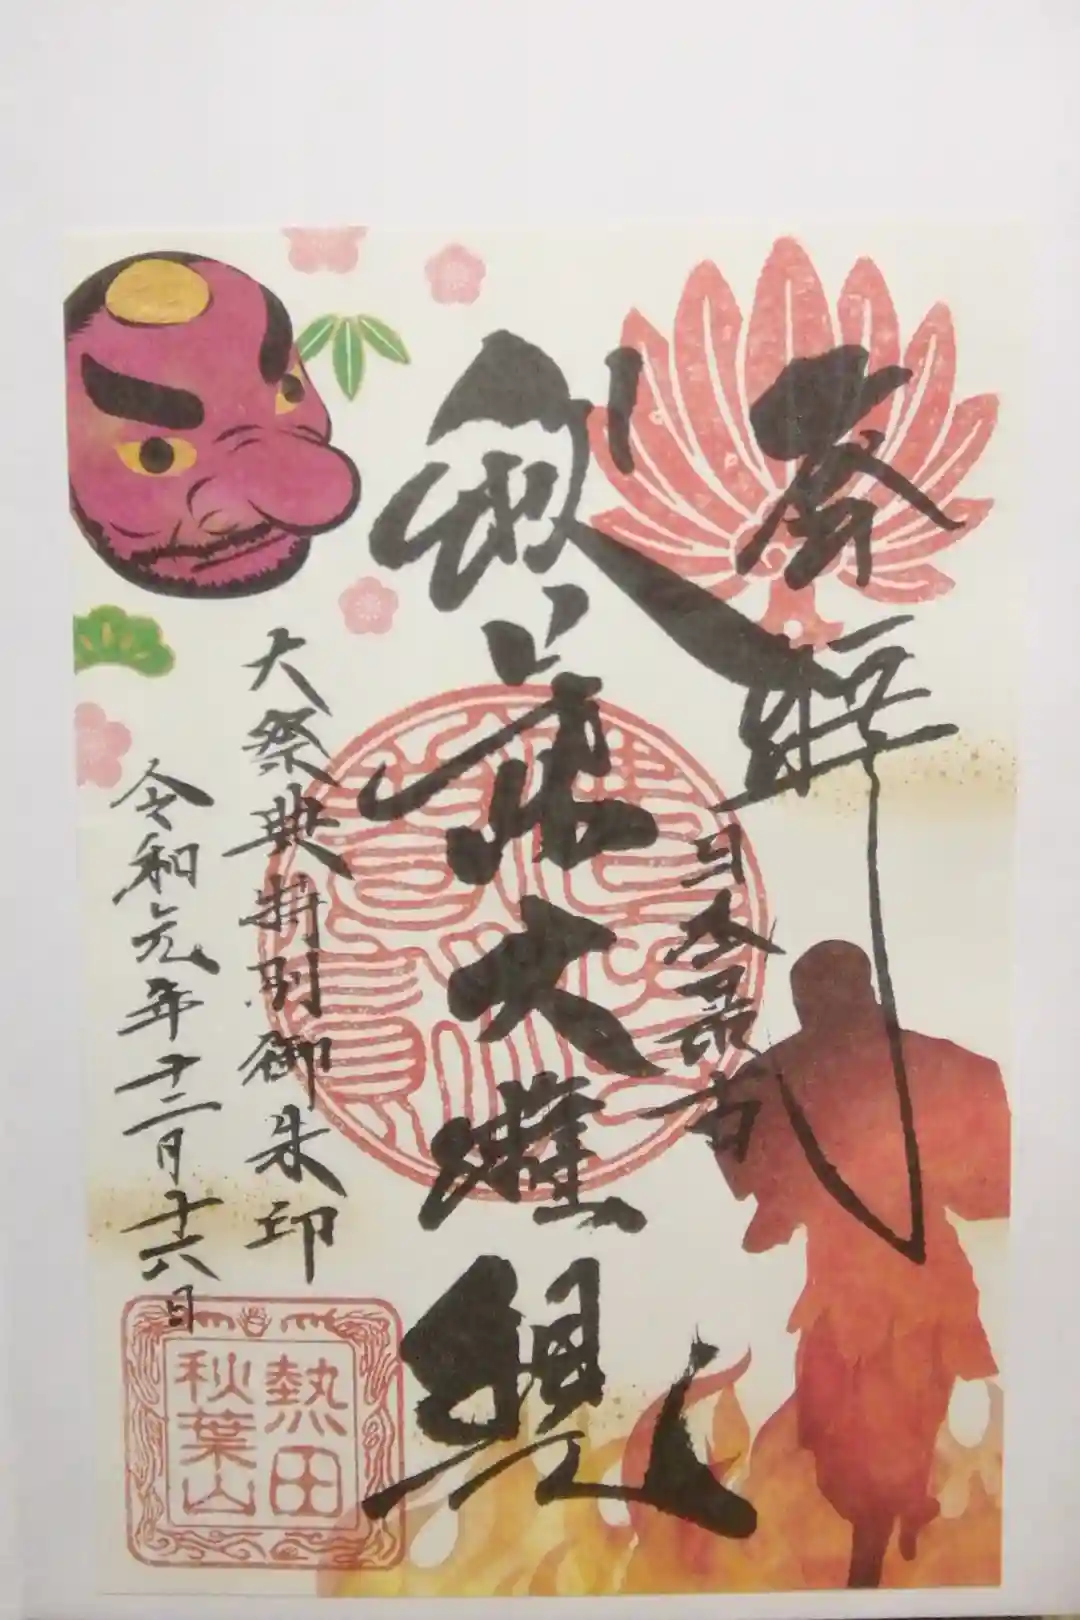 奉拝
円通寺
秋葉大権現
大祭典特別御朱印
令和元年十二月十六日
熱田
秋葉山